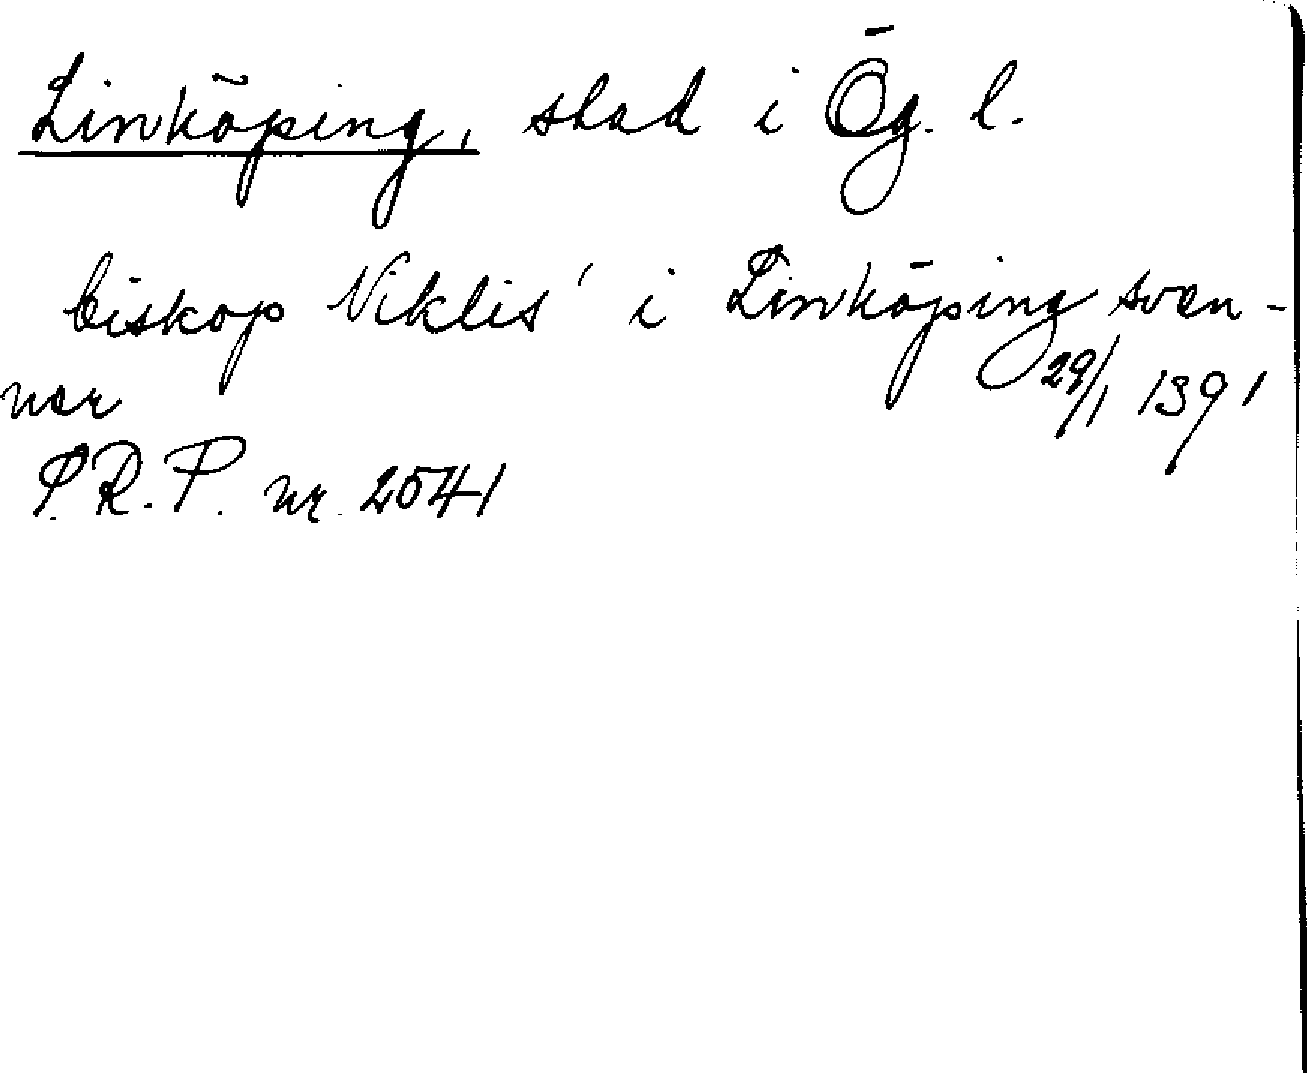 Linköping, stad i Ög. l.
biskop Niklis' i Linköping swen-
nar 29/1 1391
P.R.P. nr. 2541